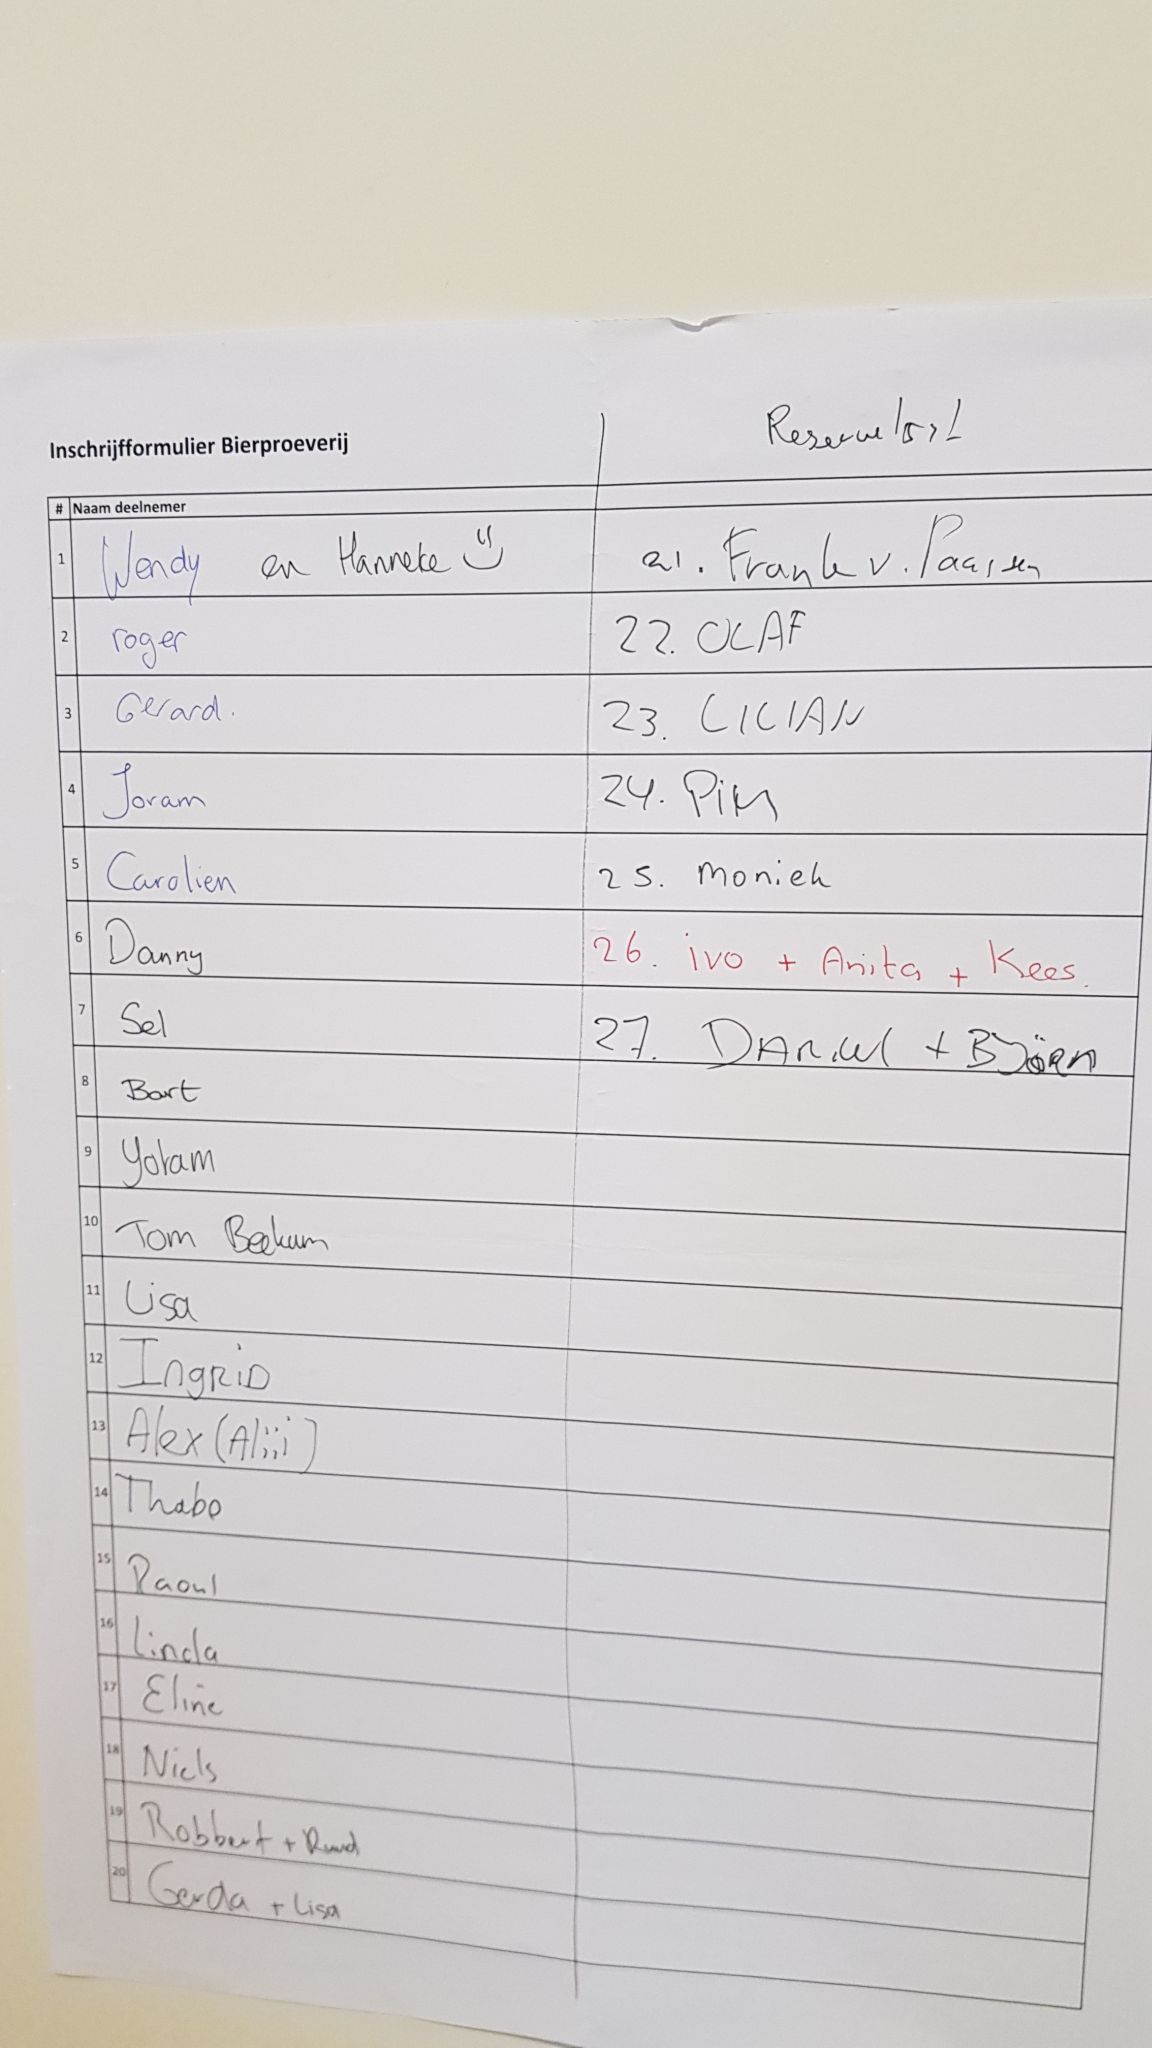 Inschrijfformulier Bierproeverij
Reservelijst
# Naam deelnemer
1 Wendy en Hanneke
21. Frank v. Paassen
2 roger
22. OLAF
3 Gerard.
23. LILIAN
4 Joram
24. PiM
5 Carolien
25. Moniek
6 Danny
26. ivo + Anita + Kees.
7 Sel
27. DANiel + BJÖRN
8 Bart
9 Yoram
10 Tom Beekum
11 Lisa
12 INGRiD
13 Alex (Aliii)
14 Thabo
15 Raoul
16 Linda
17 Eline
18 Niels
19 Robbert + Ruud
20 Gerda + Lisa